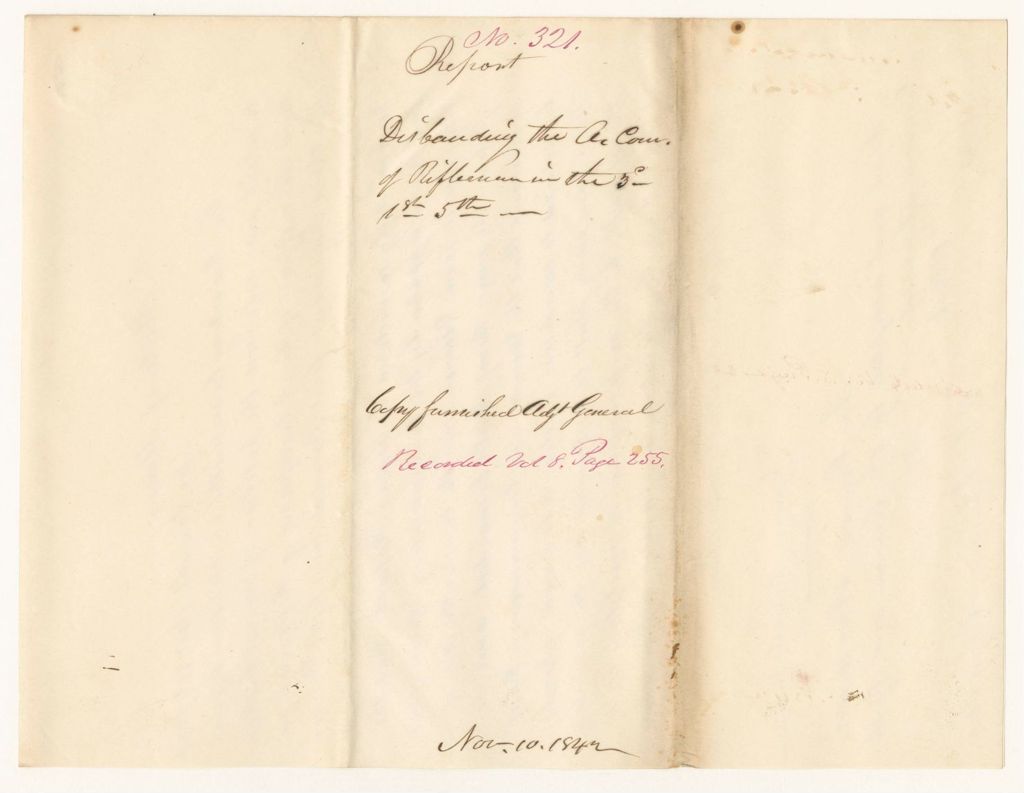 No. 321.
Report
Disbanding the A. Com.
of Riflemen in the 3d
1st 5th —
Copy furnished Adjt General
Recorded Vol 8. Page 255.
Nov. 10. 1842